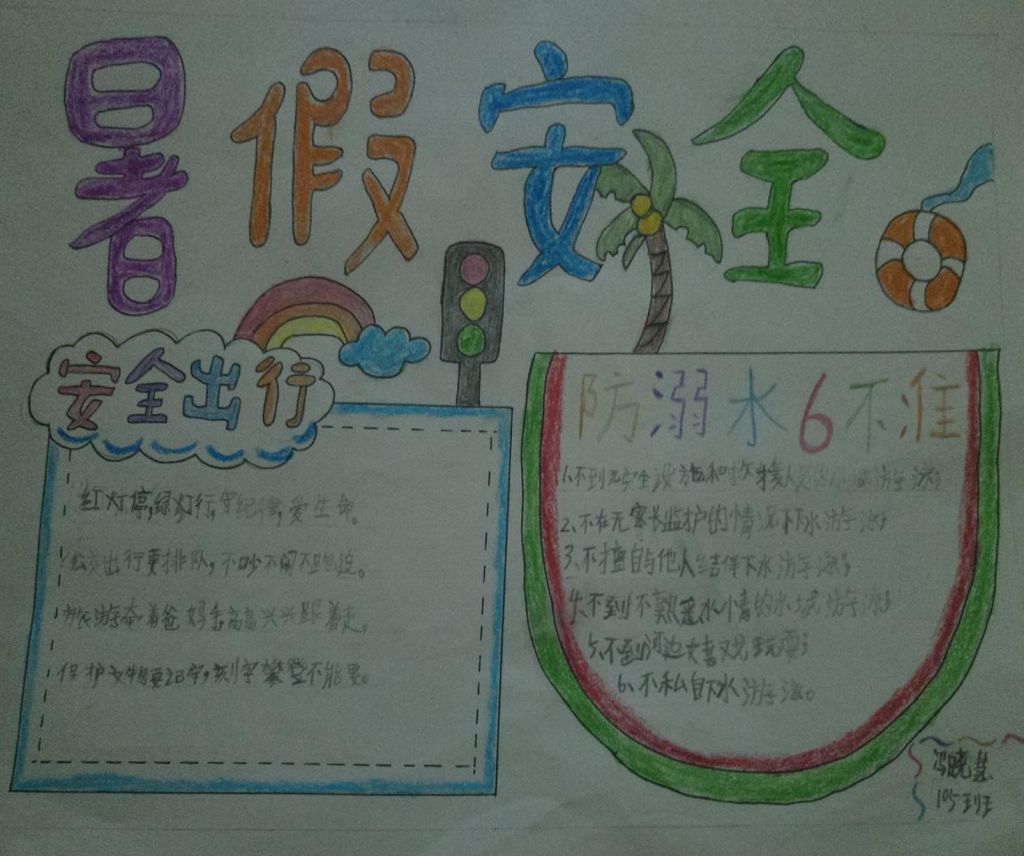 暑假安全
安全出行
红灯停,绿灯行,守纪律,爱生命。
公交出行要排队,不吵不闹不跑追。
旅游牵着爸妈手高高兴兴跟着走。
保护文物要牢,刻字攀登不能要。
防溺水6不准
1.不到无安全设施和救援人员的水域游泳;
2.不在无家长监护的情况下下水游泳;
3.不擅自与他人结伴下水游泳;
4.不到不熟悉水情的水域游泳;
5.不到河边嬉戏玩耍;
6.不私自下水游泳。
冯晓
105班